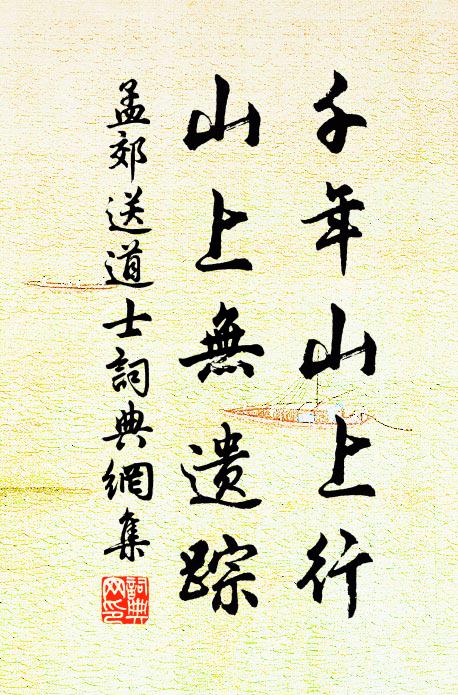 千年山上行
山上無遺踪
孟郊送道士詞典網集
詞典
网印